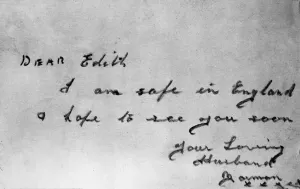 DEAR Edith
I am safe in England
& hope to see you soon
your Loving
Husband
Norman
x x x x